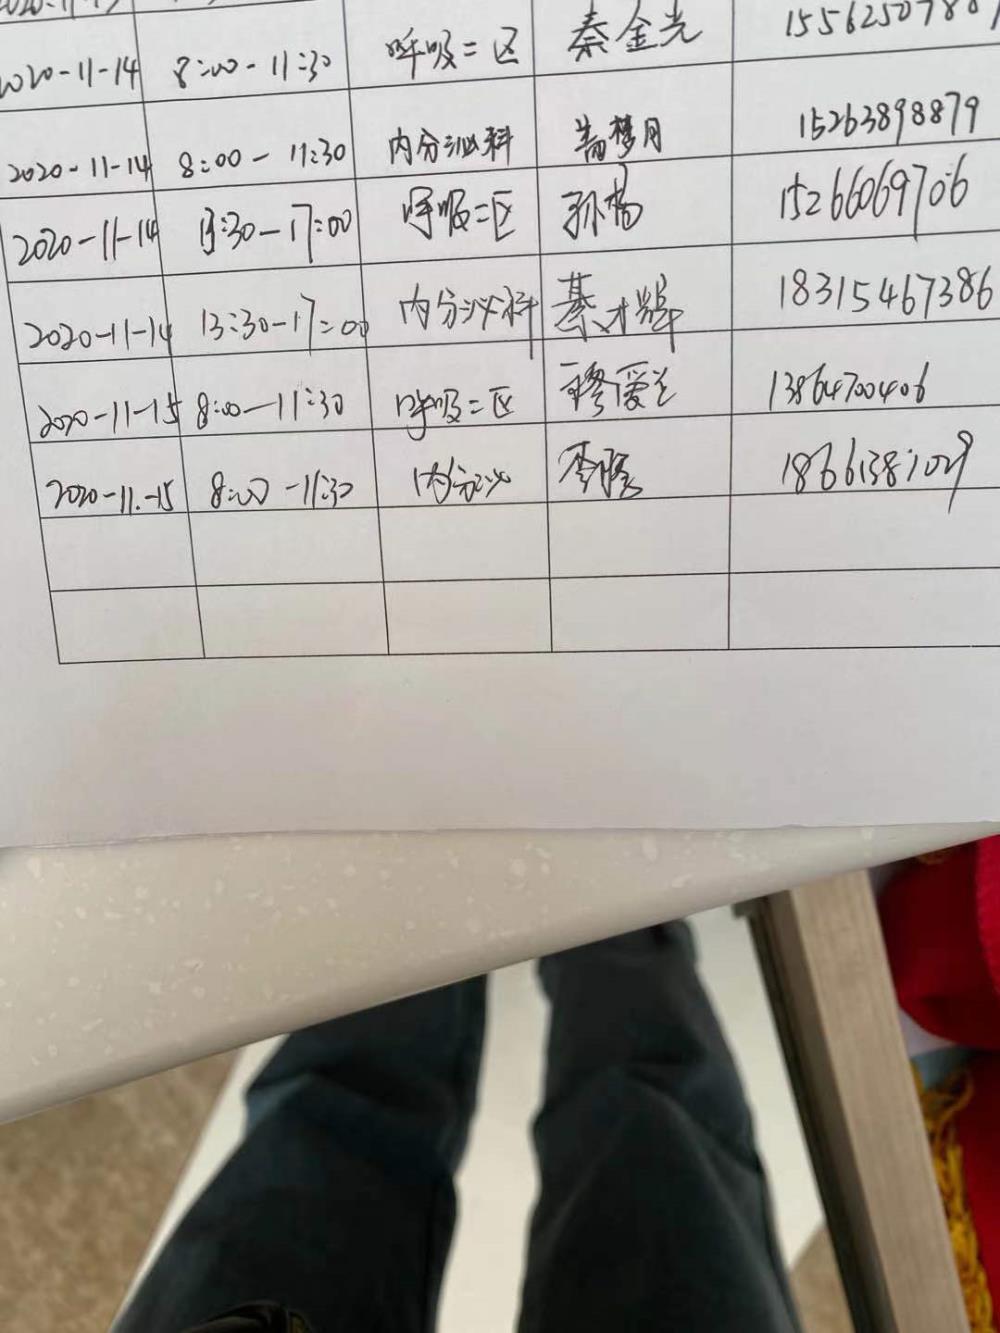 2020-11-14 8:00-11:30 呼吸二区 秦金光
2020-11-14 8:00-11:30 内分泌科 梦月 15263898879
2020-11-14 13:30-17:00 呼吸二区 孙杨 15266069706
2020-11-14 13:30-17:00 内分泌科 綦才辉 18315467386
2020-11-15 8:00-11:30 呼吸二区 穆爱兰 13864700406
2020-11-15 8:00-11:30 内分泌